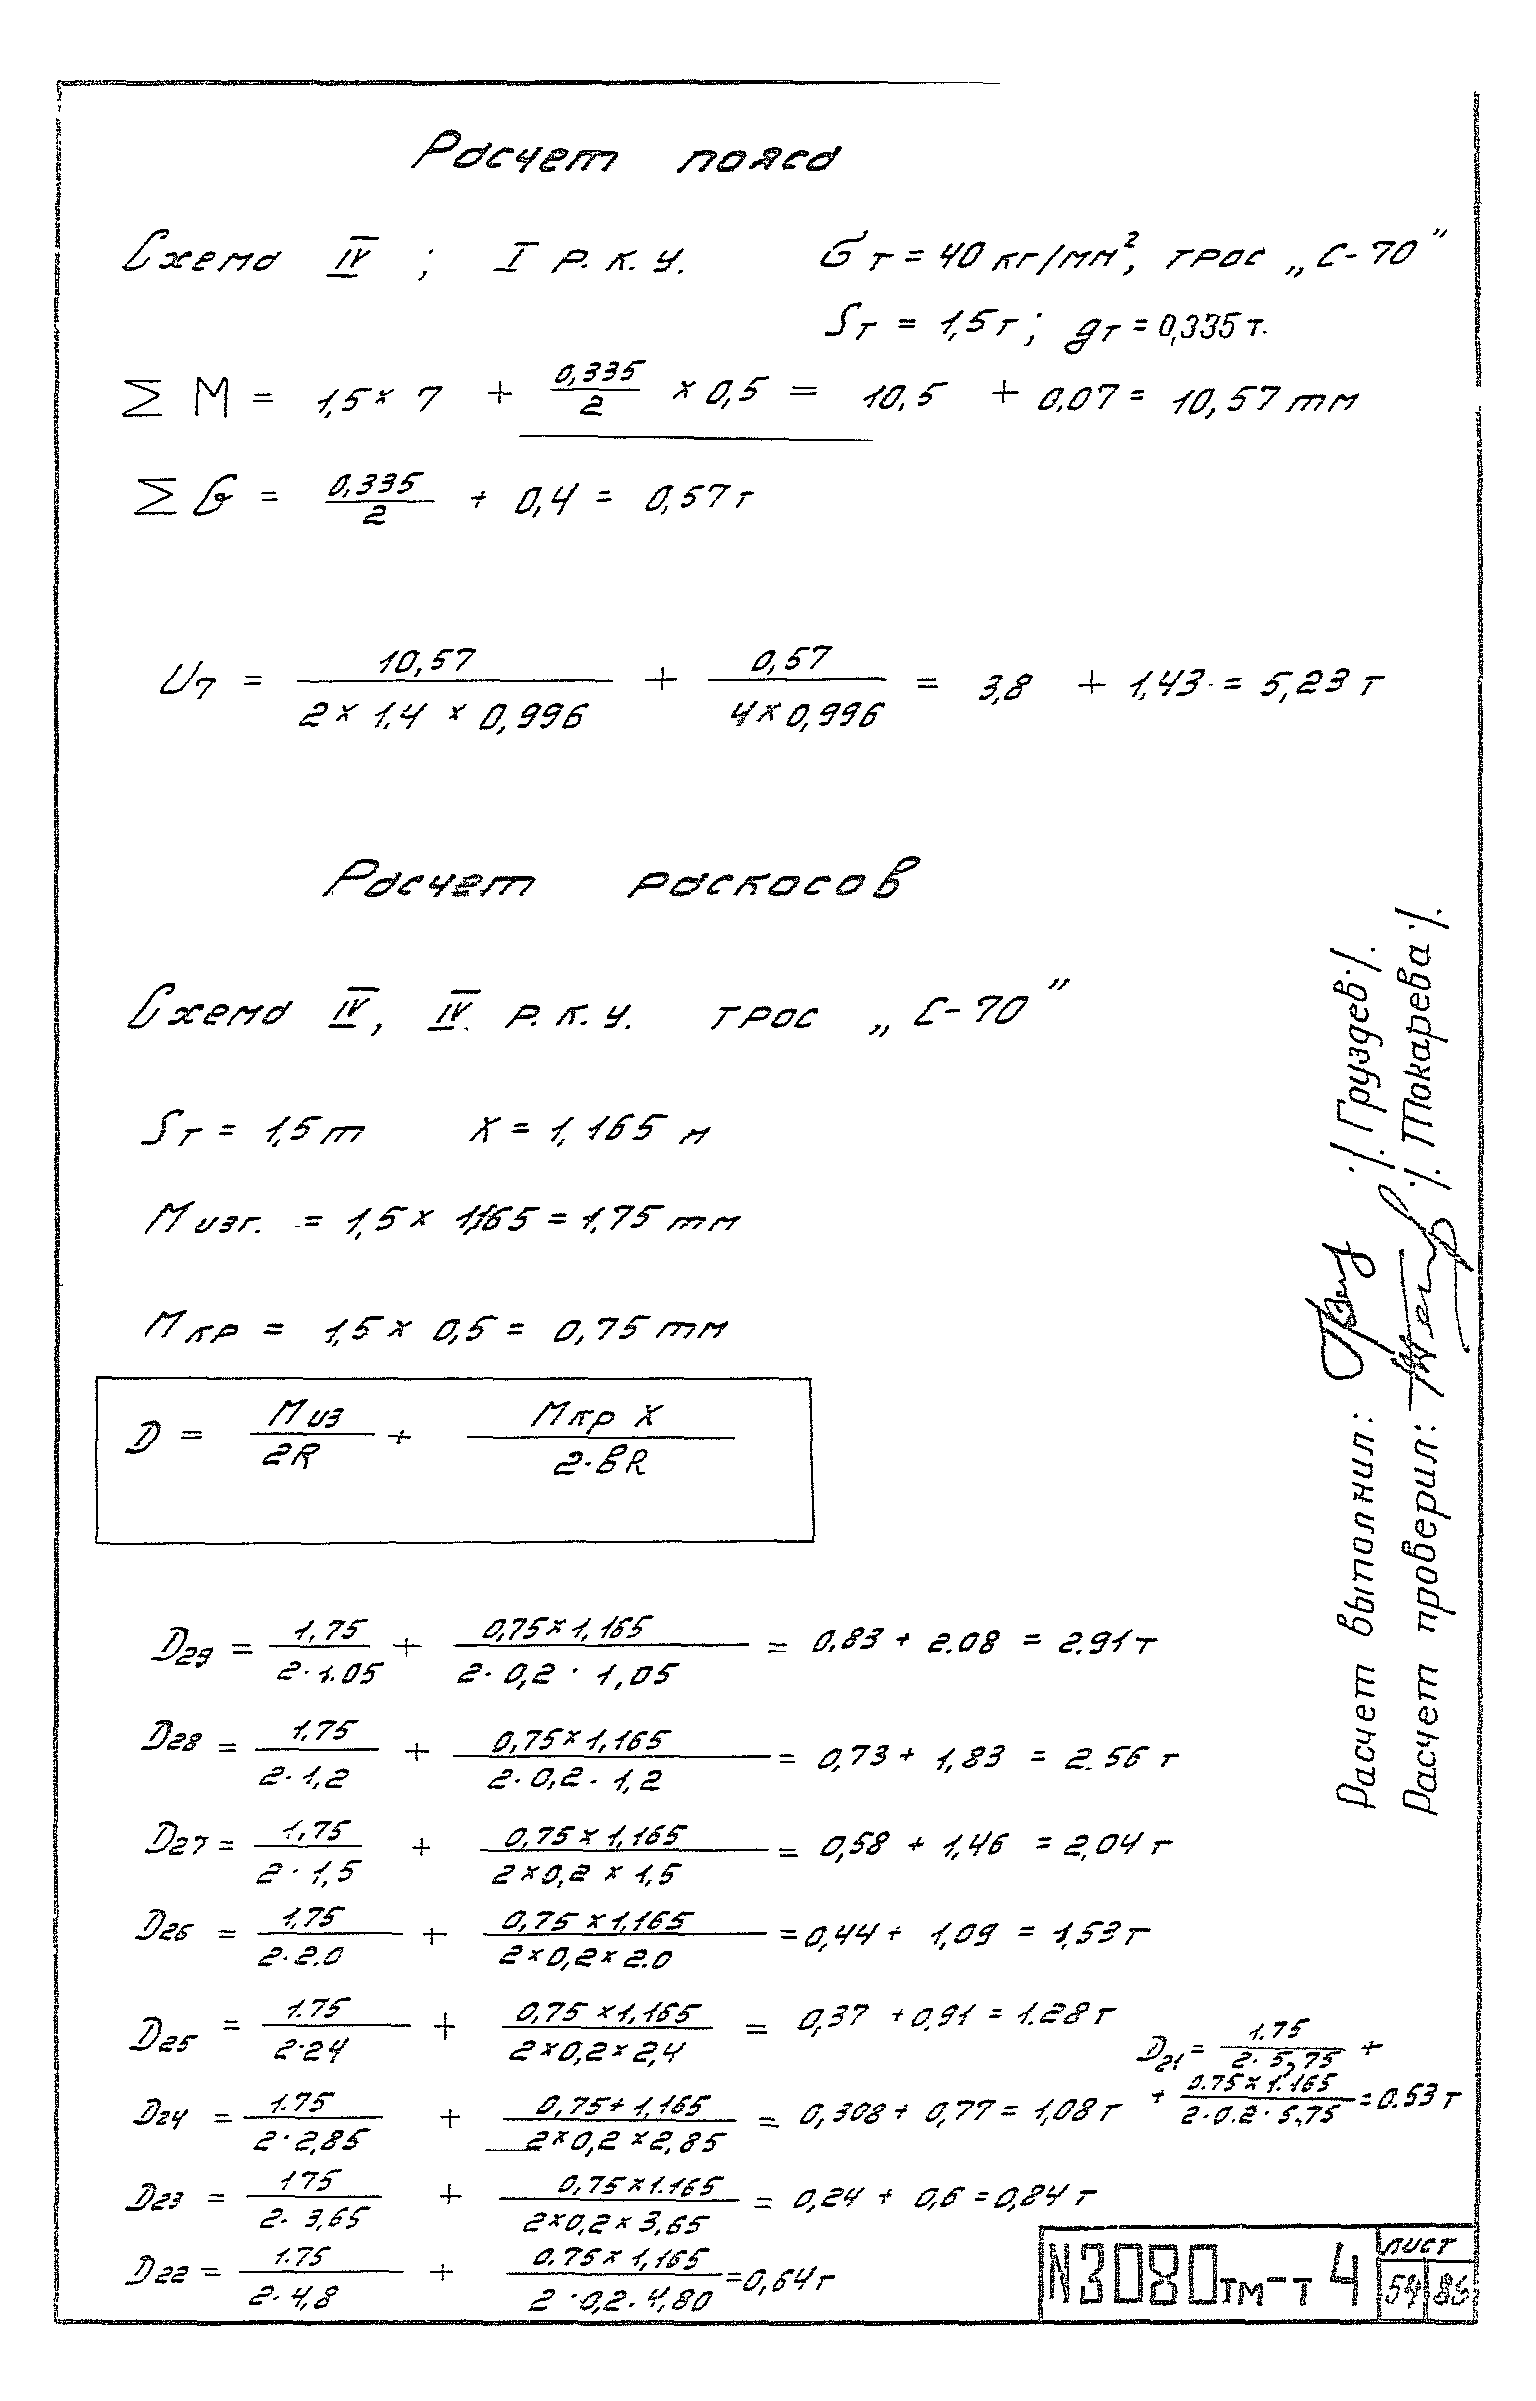 Расчет пояса
Схема IV ; I р.к.у. Gт = 40 кг/мм², трос „С-70"
Sт = 1,5т; gт = 0,335 т.
∑ M = 1,5 × 7 + 0,335/2 × 0,5 = 10,5 + 0,07 = 10,57 тм
∑ G = 0,335/2 + 0,4 = 0,57 т
U7 = 10,57/2 × 1,4 × 0,996 + 0,57/4 × 0,996 = 3,8 + 1,43 = 5,23 т
Расчет раскосов
Схема IV, IV р.к.у. трос „С-70"
Sт = 1,5 т X = 1,165 м
М изг. = 1,5 × 1,165 = 1,75 тм
М кр = 1,5 × 0,5 = 0,75 тм
D = М из/2R + М кр X/2·вR
D29 = 1,75/2·1.05 + 0,75×1,165/2·0,2·1,05 = 0.83 + 2.08 = 2.91 т
D28 = 1.75/2·1,2 + 0,75×1,165/2·0,2·1,2 = 0,73 + 1,83 = 2.56 т
D27 = 1,75/2·1,5 + 0,75×1,165/2×0,2×1,5 = 0,58 + 1,46 = 2,04 т
D26 = 1,75/2·2.0 + 0,75×1,165/2×0,2×2.0 = 0,44 + 1,09 = 1,53 т
D25 = 1.75/2·24 + 0,75×1,165/2×0,2×2,4 = 0,37 + 0,91 = 1.28 т
D24 = 1.75/2·2,85 + 0,75+1,165/2×0,2×2,85 = 0,308 + 0,77 = 1,08 т
D23 = 175/2·3,65 + 0,75×1.165/2×0,2×3,65 = 0,24 + 0,6 = 0,84 т
D22 = 1.75/2·4,8 + 0.75×1,165/2·0,2·4,80 = 0,64 т
D21 = 1.75/2·5,75 +
+ 0.75×1.165/2·0.2·5,75 = 0.53 т
Расчет выполнил: ·/. Груздев·/.
Расчет проверил: ·/. Токарева·/.
N3080тм-т 4
лист
59 86